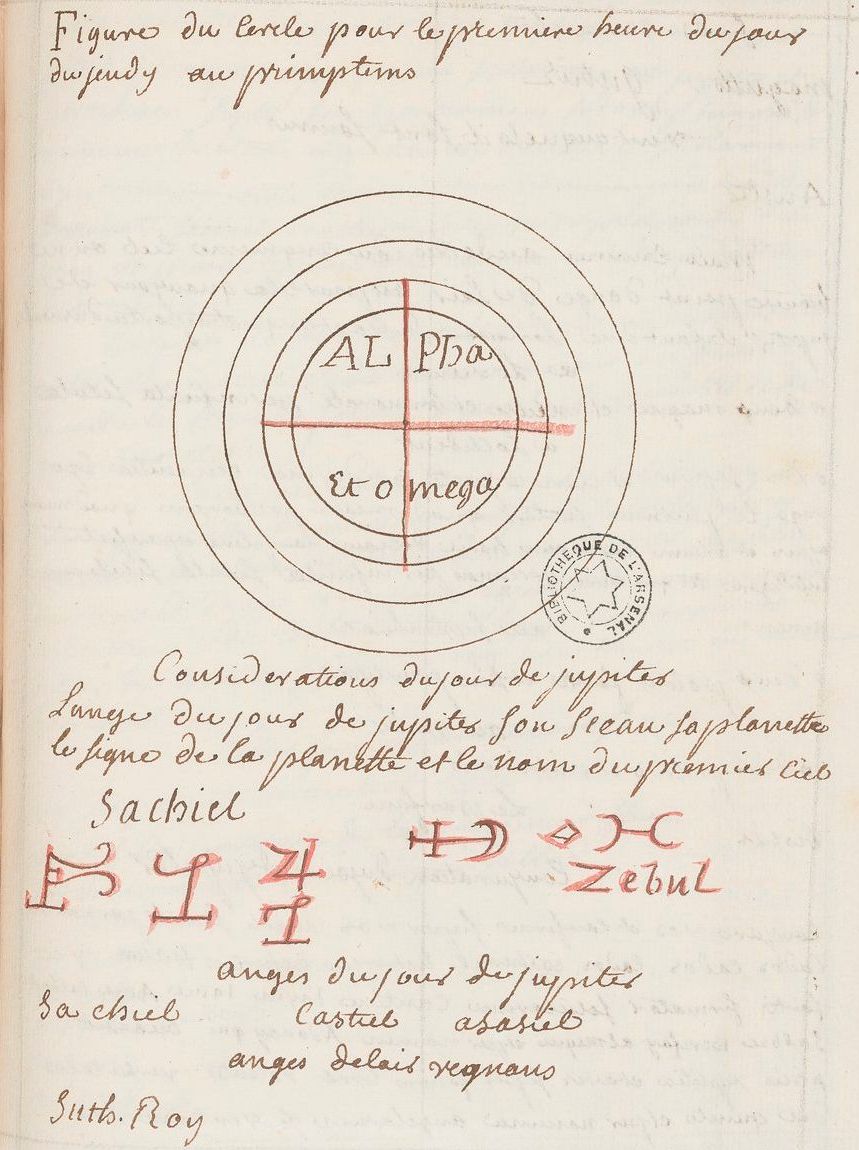 Figure du Cercle pour le premiere heure du jour
du jeudy au primptems
AL Pha
Et o mega
BIBLIOTHEQUE DE L'ARSENAL
Considerations du jour de jupiter
Lange du jour de jupiter son sceau sa planette
le signe de la planette et le nom du premier Ciel
Sachiel
Zebul
anges du jour de jupiter
Sachiel Castiel asasiel
anges delair regnans
Suth. Roy